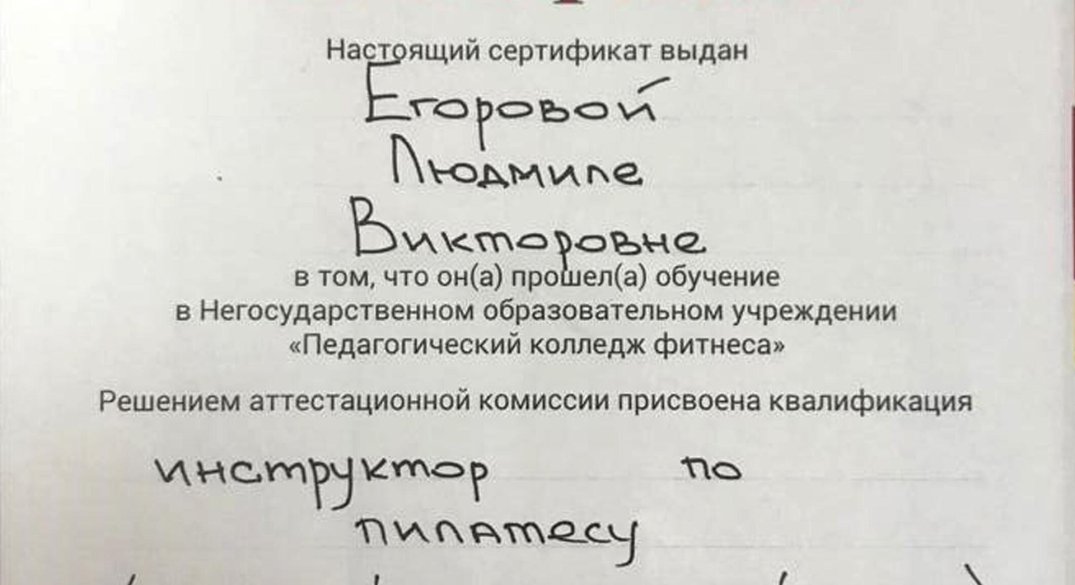 Настоящий сертификат выдан
Егоровой
Людмиле
Викторовне
в том, что он(а) прошел(а) обучение
в Негосударственном образовательном учреждении
«Педагогический колледж фитнеса»
Решением аттестационной комиссии присвоена квалификация
инструктор по
пилатесу